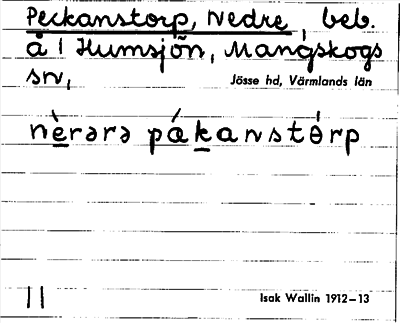 Peckanstorp, Nedre, beb.
å i Humsjön, Mangskogs
sn,
Jösse hd, Värmlands län
nèrərə pákanstórp
11
Isak Wallin 1912–13